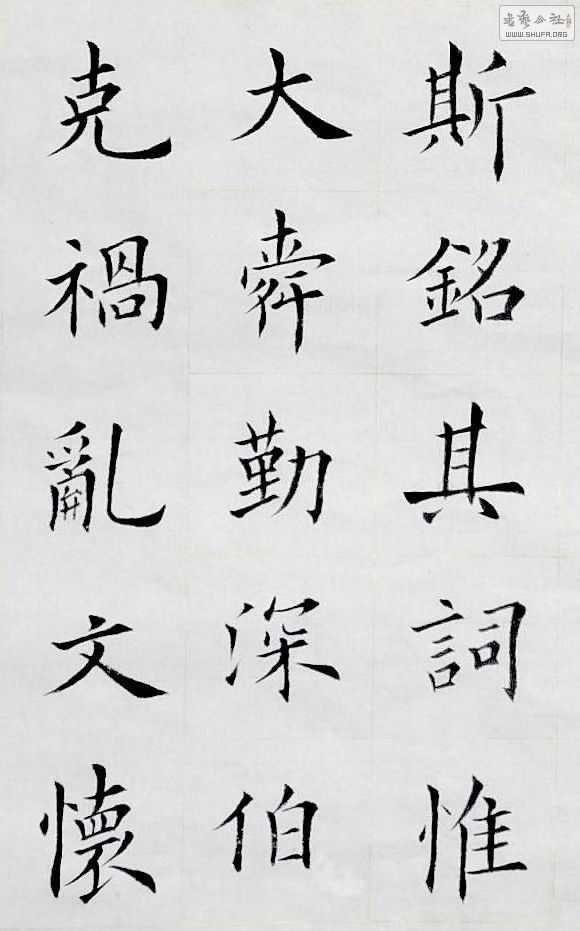 斯銘其詞惟
大舜勤深伯
克禍亂文懷
书艺公社
WWW.SHUFA.ORG